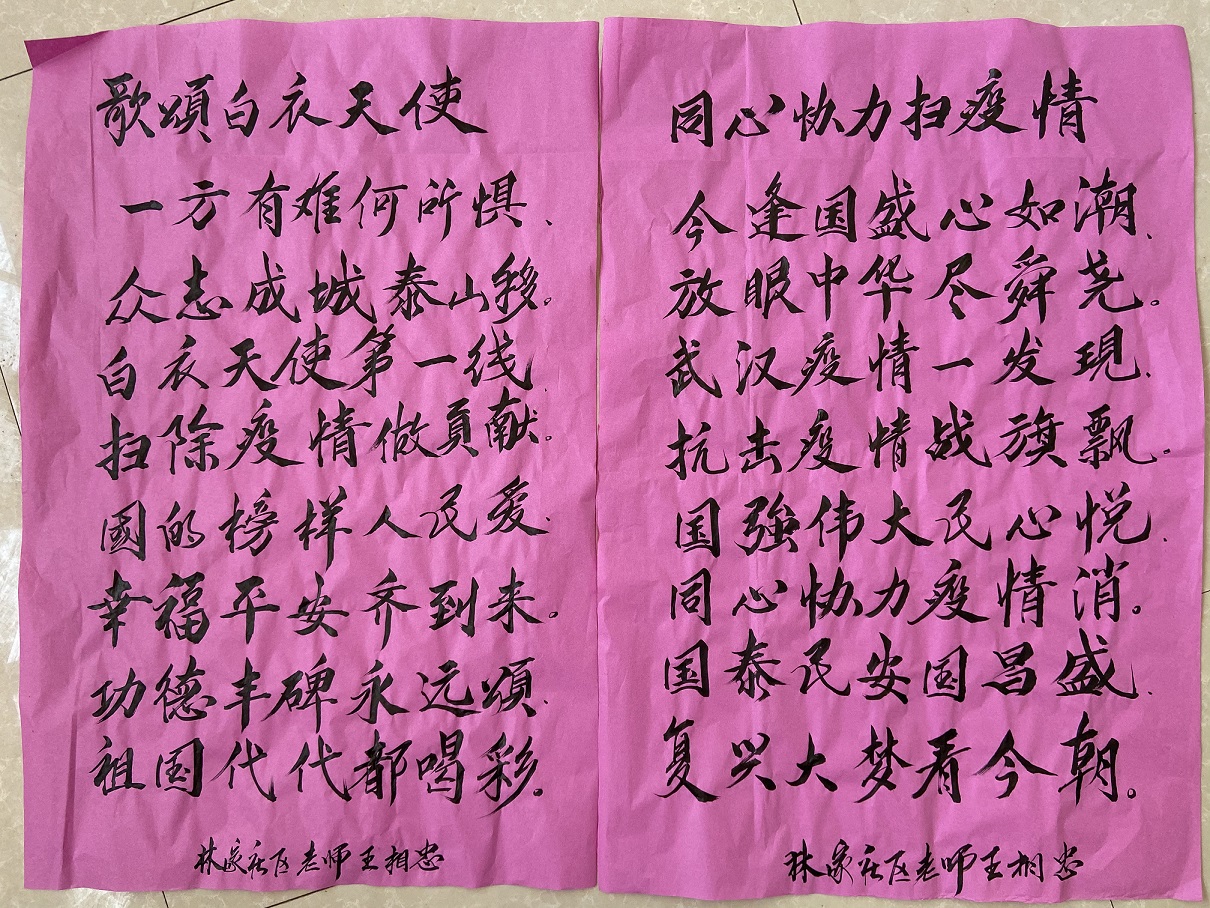 歌頌白衣天使
一方有难何所惧、
众志成城泰山移。
白衣天使第一线
扫除疫情做貢献。
國的榜样人民爱、
幸福平安齐到来。
功德丰碑永远頌、
祖国代代都喝彩。
林家社区老师王相忠
同心协力扫疫情
今逢国盛心如潮、
放眼中华尽舜尧。
武汉疫情一发現、
抗击疫情战旗飘。
国强伟大民心悦、
同心协力疫情消。
国泰民安国昌盛、
复兴大梦看今朝。
林家社区老师王相忠